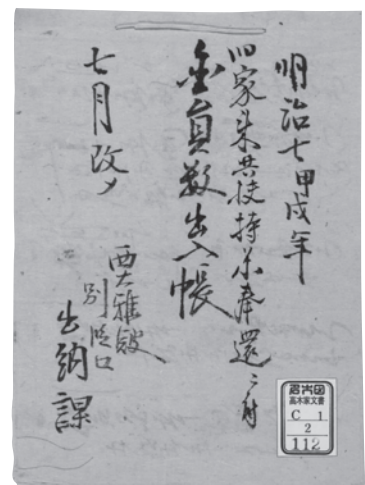 明治七甲戌年
旧家来共扶持米奉還ニ付
金員数出入帳
七月改メ
西
別段口
出納課
名大図
高木家文書
C 1
2
112